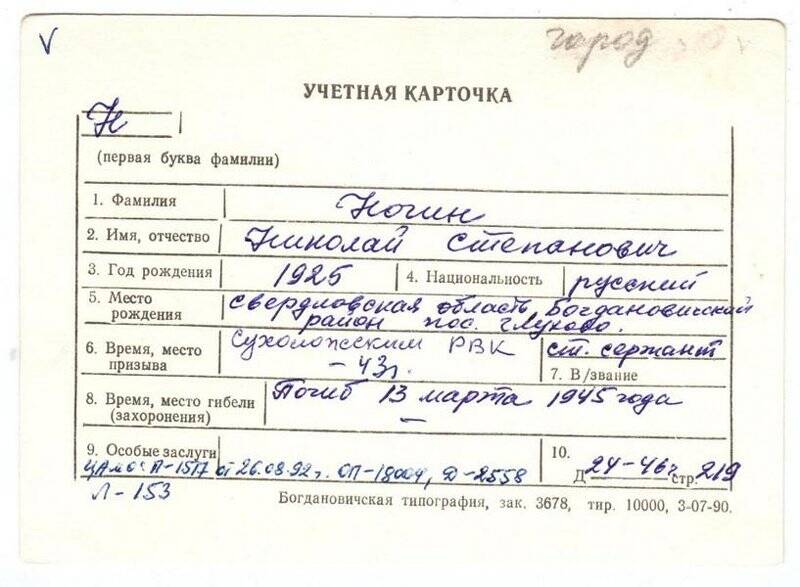 V
город
УЧЕТНАЯ КАРТОЧКА
Н
(первая буква фамилии)
1. Фамилия Ногин
2. Имя, отчество Николай Степанович
3. Год рождения 1925 4. Национальность русский
5. Место рождения свердловская область Богдановичский
район пос. Глухово.
6. Время, место призыва Сухоложским РВК
- 43г.
ст. сержант
7. В/звание
8. Время, место гибели (захоронения) Погиб 13 марта 1945 года
—
9. Особые заслуги
10.
ЦАМО: П-1517 от 26.08.92 г. ОП-18004, Д-2558
Л-153
Д 24-46г стр. 219
Богдановичская типография, зак. 3678, тир. 10000, 3-07-90.